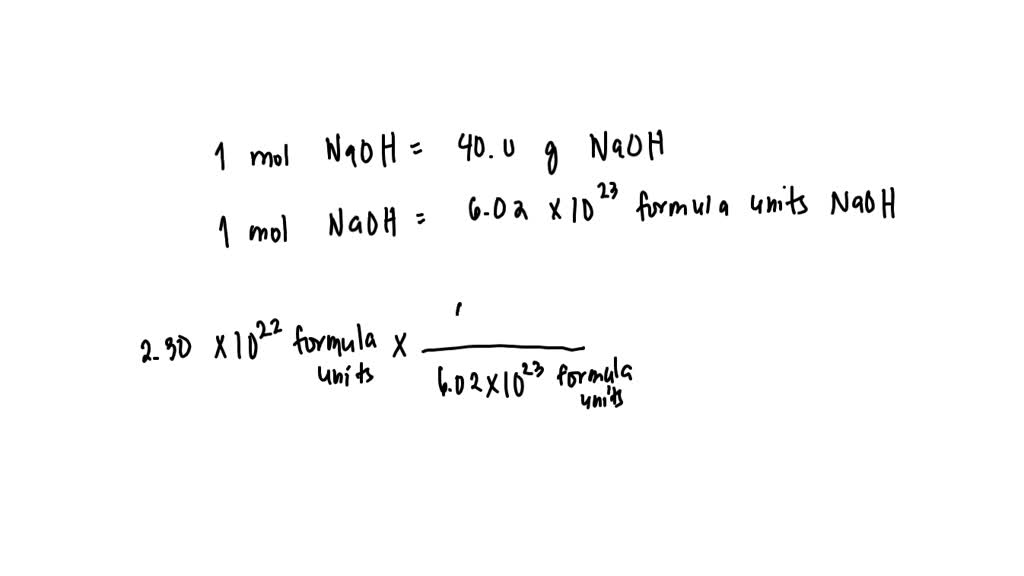 1 mol NaOH = 40.0 g NaOH
1 mol NaOH = 6.02 × 10^23 formula units NaOH
2.30 × 10^22 formula units × 
6.02 × 10^23 formula units